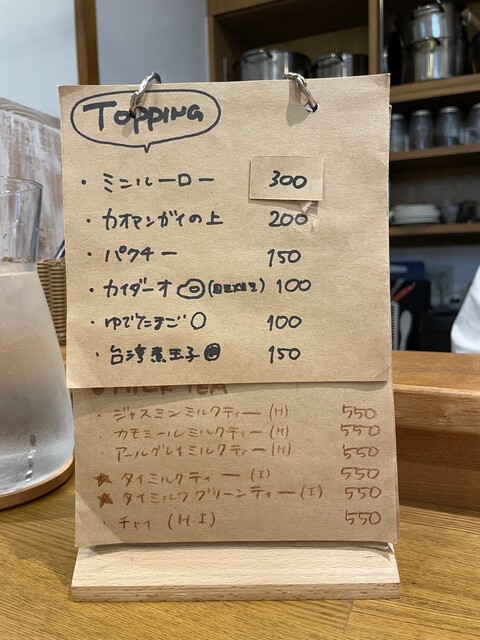 TOPPING
・ミンルーロー 300
・カオマンガイの上 200
・パクチー 150
・カイダーオ (目玉焼き) 100
・ゆでたまご 100
・台湾煮玉子 150
MILK TEA
・ジャスミンミルクティー (H) 550
・カモミールミルクティー (H) 550
・アールグレイミルクティー (H) 550
★ タイミルクティー (I) 550
★ タイミルクグリーンティー (I) 550
・チャイ (H.I) 550